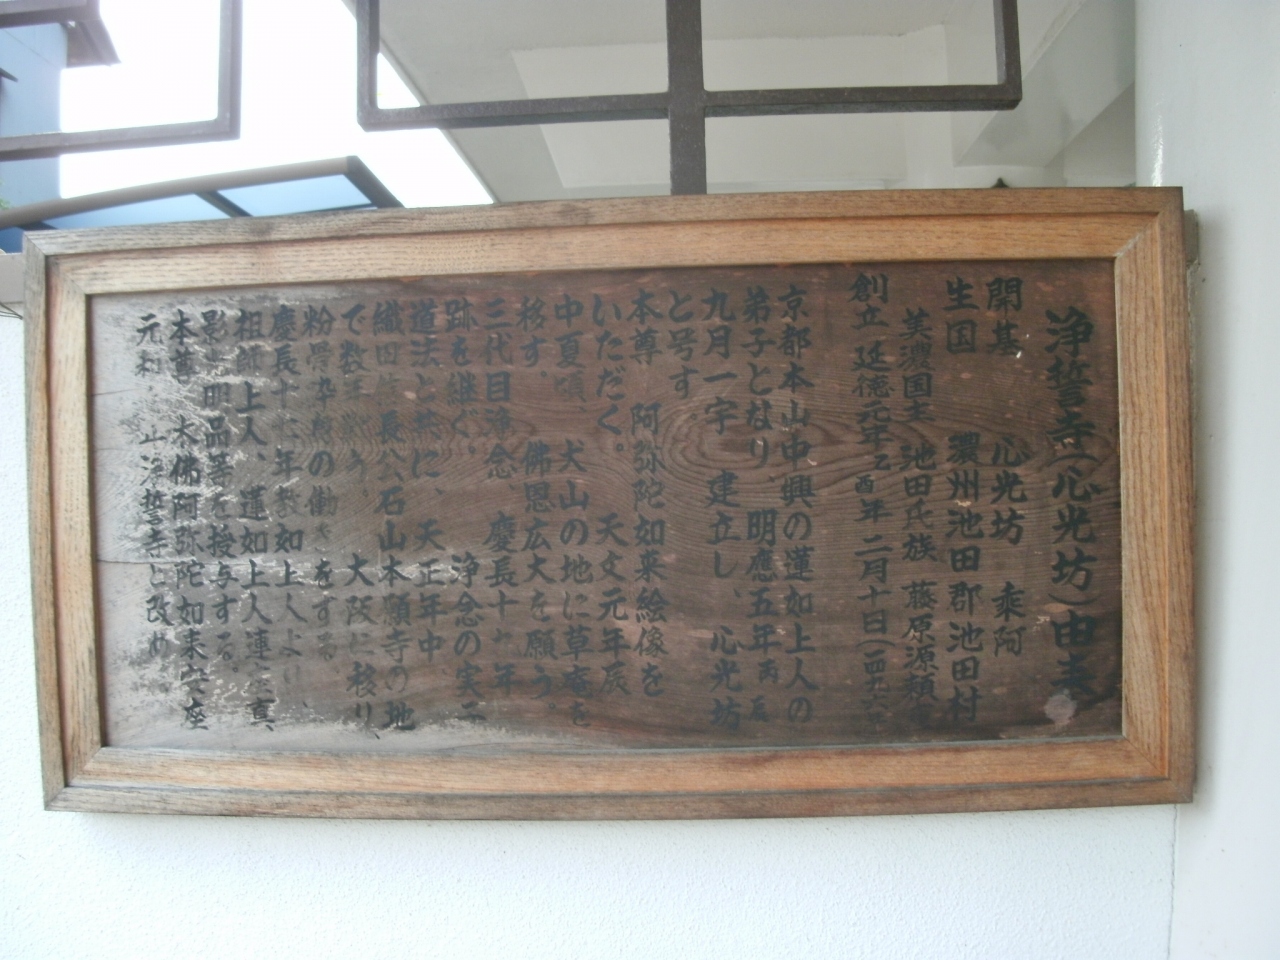 浄誓寺(心光坊)由来
開基 心光坊 乘阿
生国 濃州池田郡池田村
美濃国主 池田氏族 藤原源頼
創立 延徳元年乙酉年 二月十日(一四九六
京都本山中興の蓮如上人の
弟子となり、明應五年丙辰
九月一宇 建立し、心光坊
と号す
本尊 阿弥陀如来絵像を
いただく。 天文元年辰
中夏頃、犬山の地に草庵を
移す。 佛恩広大を願う。
三代目浄念 慶長十九年
跡を継ぐ。 浄念の実二
道法と共に、天正年中
織田信長公石山本願寺の地
で数年戦う、大阪に移り、
粉骨砕身の働きをする
慶長十 年教如上人より、
祖師上人、蓮如上人連座真、
影 明品等を授与する。
本尊 木佛阿弥陀如来安座
元和 浄誓寺と改め